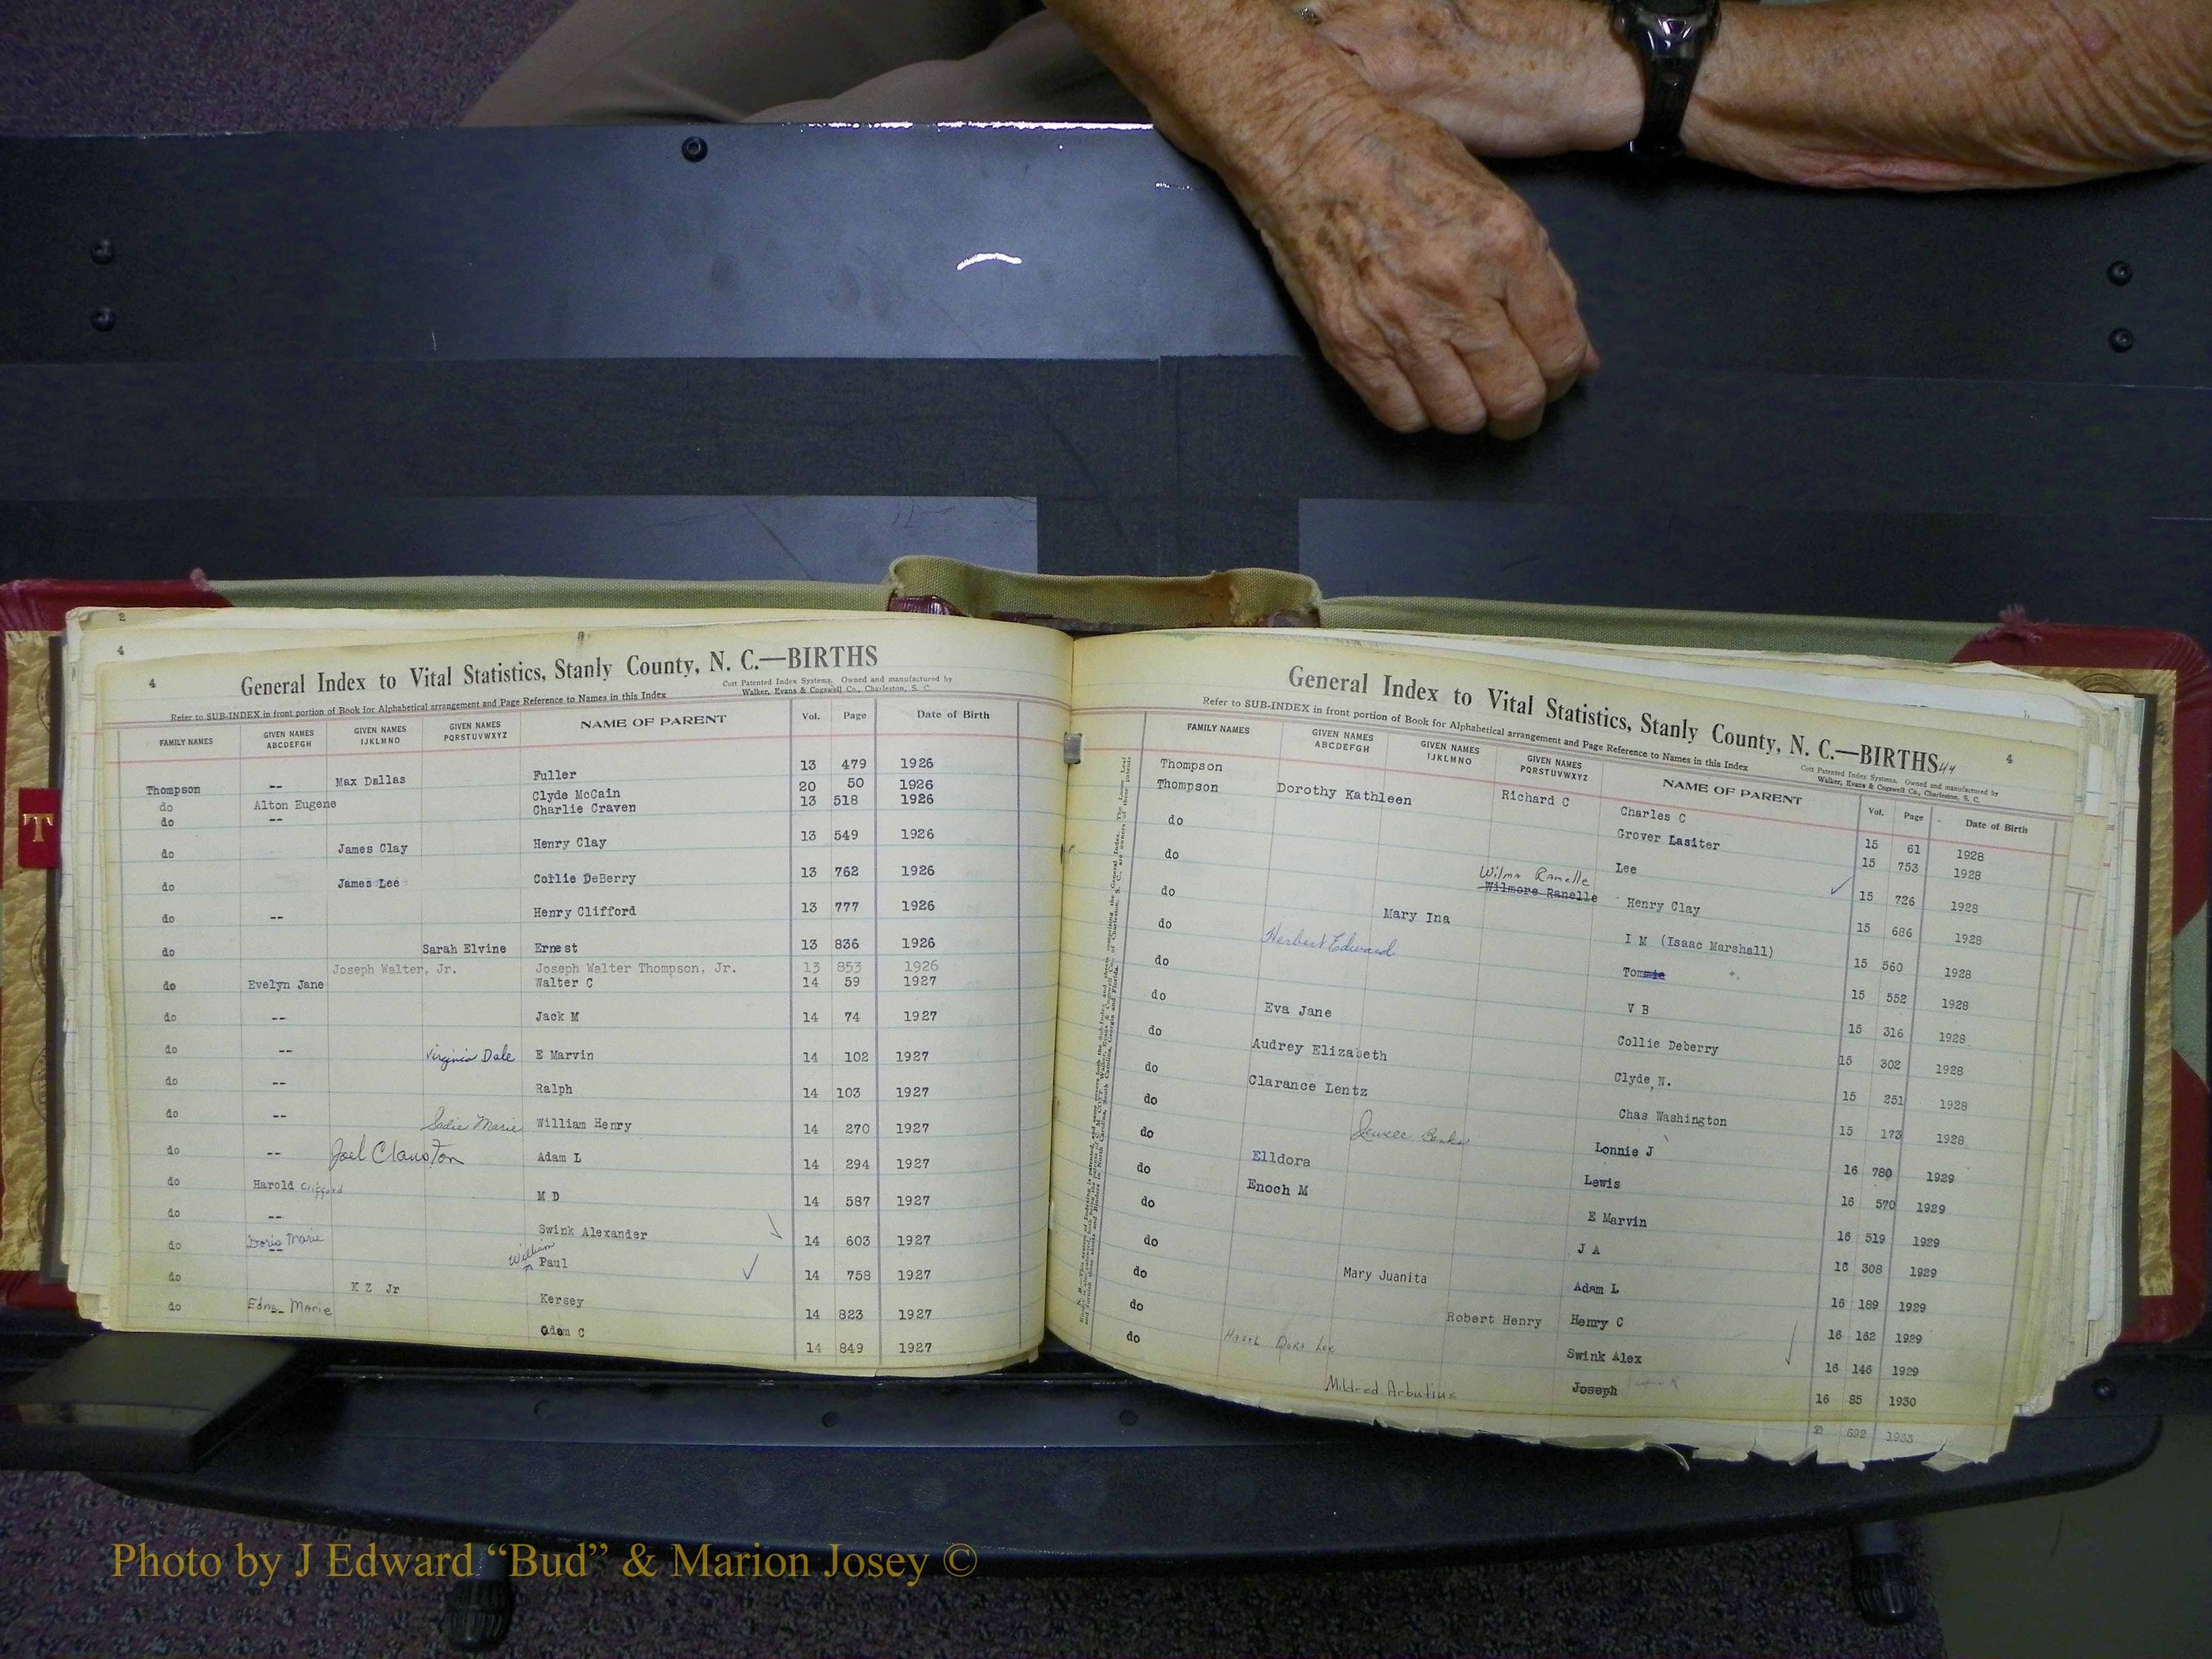 2
4
4
General Index to Vital Statistics, Stanly County, N. C.—BIRTHS
Cott Patented Index Systems. Owned and manufactured by
Walker, Evans & Cogswell Co., Charleston, S. C.
Refer to SUB-INDEX in front portion of Book for Alphabetical arrangement and Page Reference to Names in this Index
FAMILY NAMES GIVEN NAMES ABCDEFGH GIVEN NAMES IJKLMNO GIVEN NAMES PQRSTUVWXYZ NAME OF PARENT Vol. Page Date of Birth
Thompson -- Max Dallas Fuller 13 479 1926
do Alton Eugene Clyde McCain 20 50 1926
do -- Charlie Craven 13 518 1926
do James Clay Henry Clay 13 549 1926
do James Lee Collie DeBerry 13 762 1926
do -- Henry Clifford 13 777 1926
do Sarah Elvine Ernest 13 836 1926
Joseph Walter, Jr. Joseph Walter Thompson, Jr. 13 853 1926
do Evelyn Jane Walter C 14 59 1927
do -- Jack M 14 74 1927
do -- Virginia Dale E Marvin 14 102 1927
do -- Ralph 14 103 1927
do -- Sadie Marie William Henry 14 270 1927
do -- Joel Clauston Adam L 14 294 1927
do Harold Clifford M D 14 587 1927
do -- Swink Alexander 14 603 1927
do Doris Marie -- William Paul 14 758 1927
do K Z Jr Kersey 14 823 1927
do Edna Marie Adam C 14 849 1927
T
General Index to Vital Statistics, Stanly County, N. C.—BIRTHS 44
4
Refer to SUB-INDEX in front portion of Book for Alphabetical arrangement and Page Reference to Names in this Index
Cott Patented Index Systems. Owned and manufactured by
Walker, Evans & Cogswell Co., Charleston, S. C.
FAMILY NAMES GIVEN NAMES ABCDEFGH GIVEN NAMES IJKLMNO GIVEN NAMES PQRSTUVWXYZ NAME OF PARENT Vol. Page Date of Birth
Thompson Richard C Charles C 15 61 1928
Thompson Dorothy Kathleen Grover Lasiter 15 753 1928
do Wilma Ranelle Wilmore Ranelle Lee 15 726 1928
do Mary Ina Henry Clay 15 686 1928
do Herbert Edward I M (Isaac Marshall) 15 560 1928
do Tommie 15 552 1928
do Eva Jane V B 15 316 1928
do Audrey Elizabeth Collie Deberry 15 302 1928
do Clarance Lentz Clyde N. 15 251 1928
do Chas Washington 15 173 1928
do Elldora Lonnie J 16 780 1929
do Enoch M Lewis 16 570 1929
do E Marvin 16 519 1929
do J A 16 308 1929
do Mary Juanita Adam L 16 189 1929
do Robert Henry Henry C 16 162 1929
do Hazel Dora Lee Swink Alex 16 146 1929
do Mildred Arbutius Joseph 16 85 1930
692 1933
Photo by J Edward “Bud” & Marion Josey ©